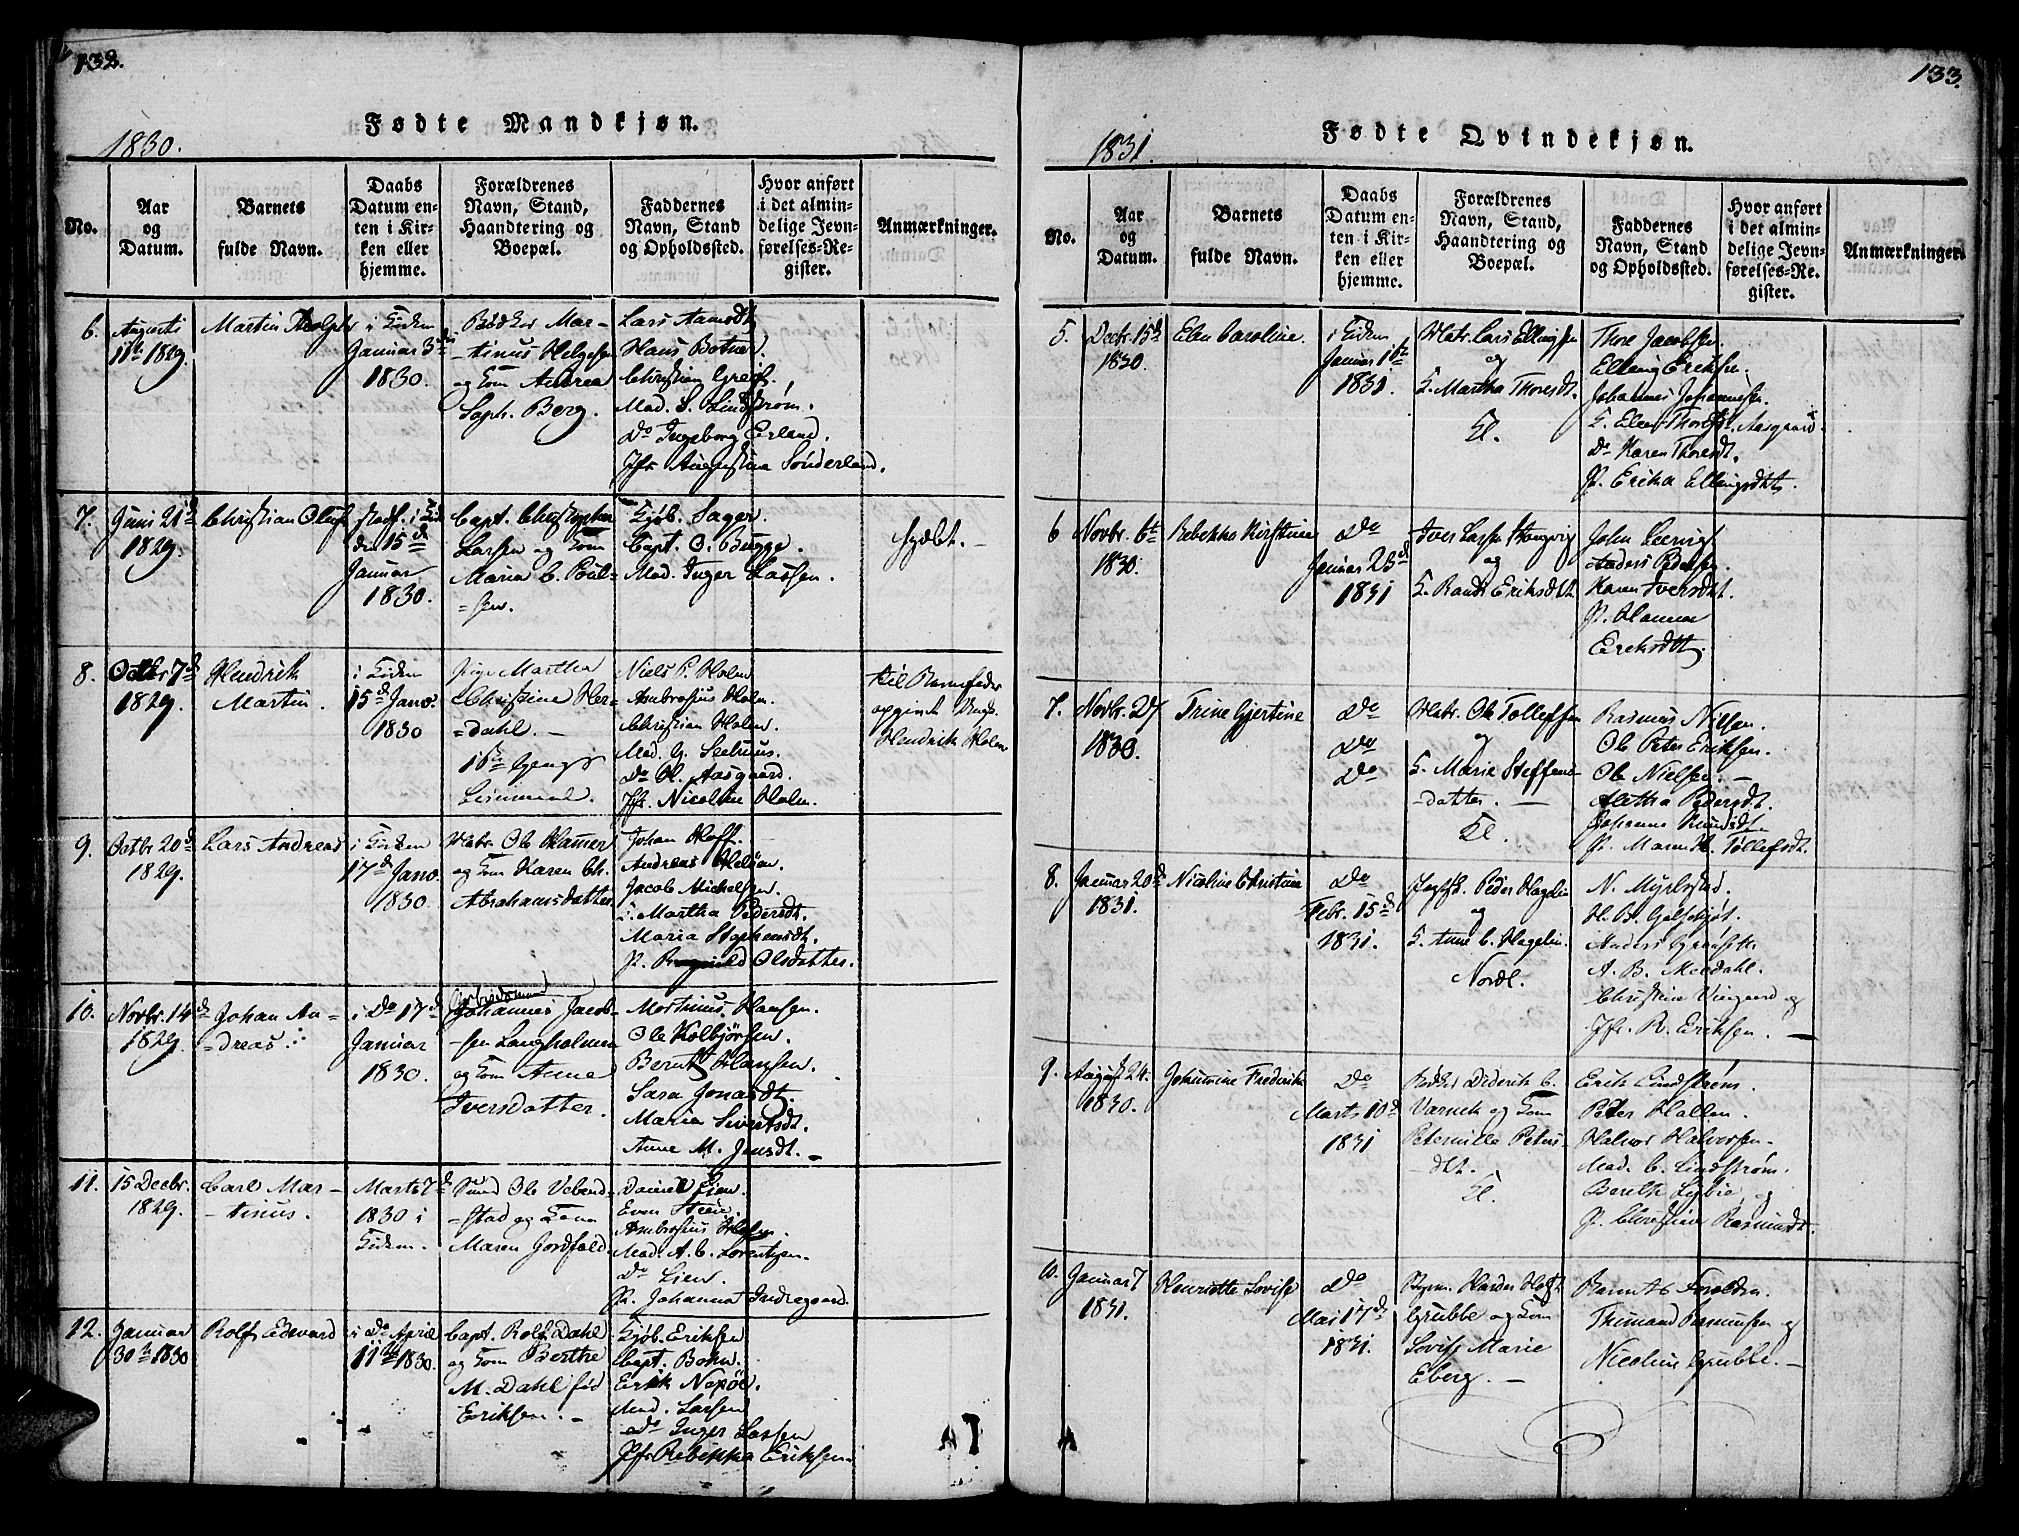 132.
Fødte Mandkjøn.
1830.
No.
Aar
og
Datum.
Barnets
fulde Navn.
Daabs
Datum en-
ten i Kir-
ken eller
hjemme.
Forældrenes
Navn, Stand,
Haandtering og
Boepæl.
Faddernes
Navn, Stand
og Opholdssted.
Hvor anført
i det almin-
delige Jevn-
førelses-Re-
gister.
Anmærkninger.
6.
Augusti
11te 1829.
Martin Adolph
i Kirken
Januar 3die
1830.
Bødker Mar-
tinus Helgesen
og Kone Andrea
Soph. Berg.
Lars Aamodt
Hans Botner.
Christian Greif.
Mad. S. Lindstrøm.
Do Ingeborg Erland.
Jfr Augustina Sønderland.
7.
Juni 21de
1829.
Christian Oluf
den 15de
Januar
1830.
Capt. Christopher
Larsen og Kone
Maria C. Poul-
sen.
Kjøb. Sager.
Capt. O. Bugge.
Mad. Inger Lassen.
hjdbt.
8.
Octbr 7de
1829.
Hendrik
Martin.
i Kirken
15de Janv.
1830
Pige Martha
Christine Her-
dahl.
1ste Gangs
Leiermaal.
Niels P. Holm
Ambrosius Holm
Christian Holm
Mad. G.
Do Ol. Aasgaard.
Jfr. Nicoline Holm.
til Barnefader
opgivet Ungk.
Hendrik Holm
9.
Octbr 20de
1829.
Lars Andreas
i Kirken
17de Janv.
1830
Matr. Ole Hamer
og Kone Karen Ch.
Abrahamsdatter.
Johan Hoff.
Andreas
Jacob Michelsen.
K. Martha Pedersdt.
Maria Stephensdt.
P. Olsdatter.
10.
Novbr. 14de
1829.
Johan An-
dreas.
i Do 17de
Januar
1830.
Arbeidsmand
Johannes Jacob-
sen Langholmen
og Kone Anne
Iversdatter.
Morthinus Hansen.
Ole Kolbjørsen.
Bernt Hansen.
Sara Jonasdt.
Maria Sivertsdt.
Anne M. Jensdt.
11.
15 Decbr.
1829.
Carl Mar-
tinus.
Marts 7de
1830 i
Kirken.
Ole Vebend-
stad og Kone
Maren Jordfald.
Daniel Lien.
Even
Ambrosius
Mad. A. C. Lorentzen.
Do Lien.
P. Johanna Indregaard.
12.
Januar
30te 1830
Rolf Edevard
i Do April
11te 1830.
Capt. Rolf Dahl
og Kone Berthe
M. Dahl fød
Eriksen.
Kjøb. Eriksen
Capt. Bohn.
Erik
Mad. Larsen
Do Inger Lassen
Jfr Rebekka Eriksen.
133.
Fødte Qvindekjøn.
1831.
No.
Aar
og
Datum.
Barnets
fulde Navn.
Daabs
Datum en-
ten i Kir-
ken eller
hjemme.
Forældrenes
Navn, Stand,
Haandtering og
Boepæl.
Faddernes
Navn, Stand
og Opholdssted.
Hvor anført
i det almin-
delige Jevn-
førelses-Re-
gister.
Anmærkninger.
5.
Decbr. 15de
1830.
Elen Caroline.
i Kirken
Januar 16de
1831.
Matr. Lars Ellingsen
og
K. Martha Thoresdt.
Kl.
Thore Jacobsen.
Elling Eriksen.
Johannes Johannesen.
K. Elen Aasgaard.
Do Karen Thoresdt.
P. Erika Ellingsdtr.
6
Novbr. 6te
1830.
Rebekka Kirstine
Do
Januar 25de
1831
Iver Larsen
og
K. Randi Eriksdtt.
John
Anders Pedersen.
Karen Iversdt.
P. Hanna
Eriksdtt.
7.
Novbr. 27
1830.
Trine Gjertine
Do
Do
Do
Matr. Ole Tollefsen
og
K. Marie Steffens-
datter.
Kl.
Rasmus Nilsen.
Ole Peter Eriksen.
Ole Nielsen.
Aletha Pedersdt.
Johanne Knudsdt
P. Maren Tollefsdt.
8.
Januar 20de
1831.
Nicoline Christine
Do
Febr. 15de
1831.
Peder Hagelin
og
K. Anne C. Hagelin.
Nordl.
N. Myrbostad.
H. B.
Anders
A. B. Meedahl.
Christine Viegaard og
Jfr. R. Eriksen.
9.
August 24.
1830.
Johannine Frederike
Do
Marts 10de
1831
Bødker Diderik C.
Varnek og Kone
Peternille Peters-
dt.
Kl.
Erik Lindstrøm.
Peter Hallen.
Halvor Halvorsen.
Mad. C. Lindstrøm.
Berethe og
P. Christine Rasmusdt.
10.
Januar 7
1831.
Henriette Lovise
Do
Mai 17de
1831.
Styrm. Harder Holst
Grubbe og Kone
Lovise Marie
Eberg.
Barnets Forældre.
Rasmussen og
Nicoline Grubbe.